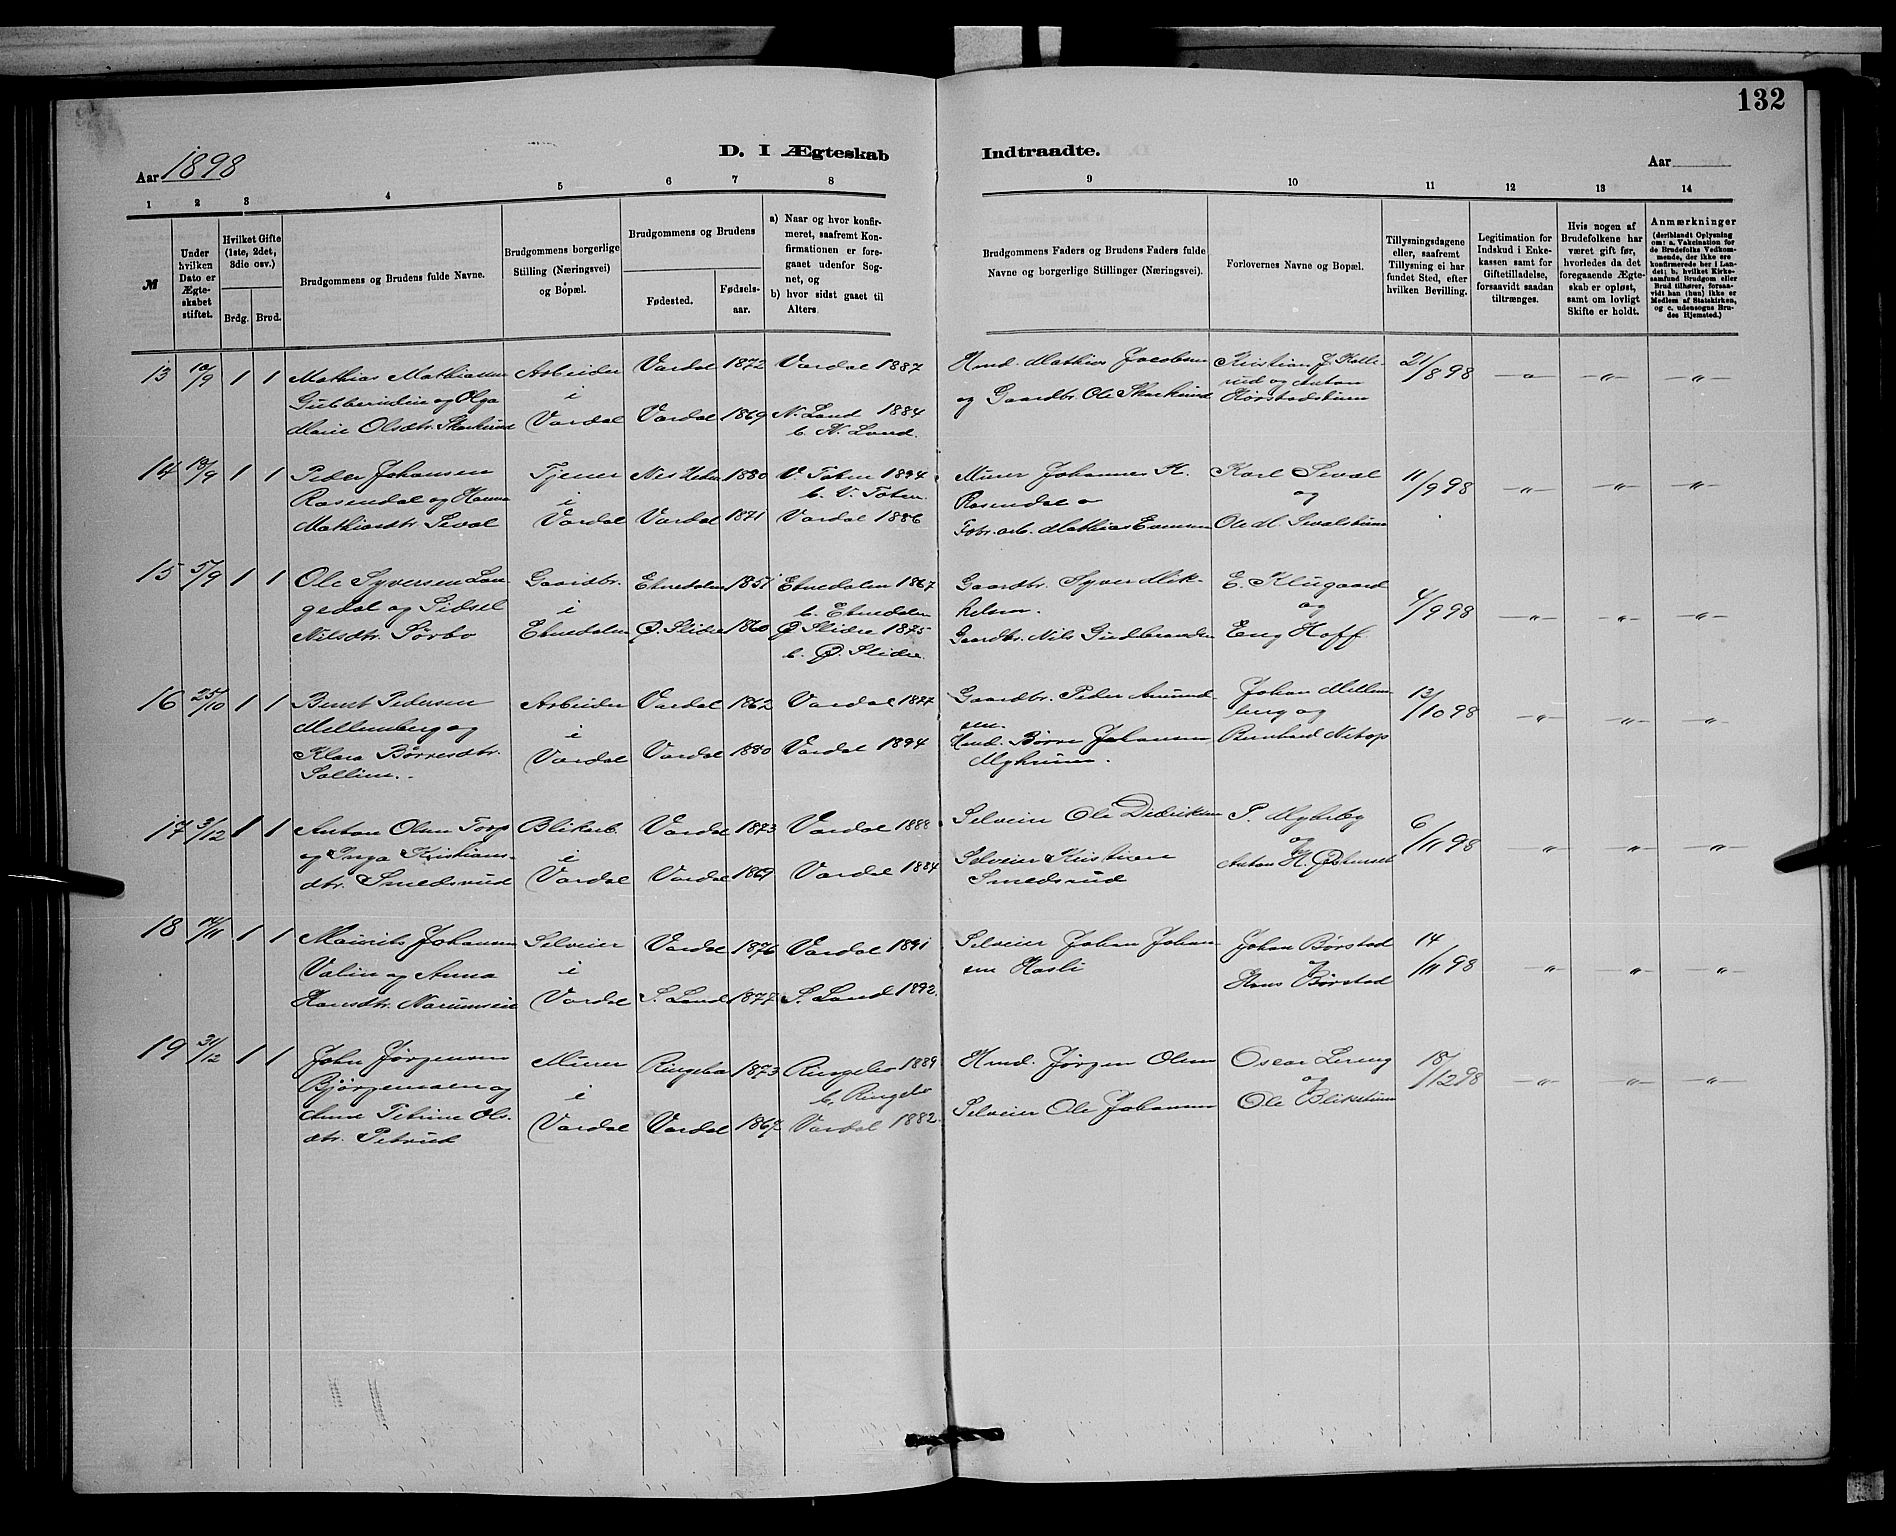 132
D. I Ægteskab Indtraadte.
Aar 1898
Aar
1 2 3 4 5 6 7 8 9 10 11 12 13 14
№
Under hvilken Dato er Ægteskabet stiftet.
Hvilket Gifte (1ste, 2det, 3die osv.)
Brdg. Brud.
Brudgommens og Brudens fulde Navne.
Brudgommens borgerlige Stilling (Næringsvei) og Bopæl.
Brudgommens og Brudens
Fødested.
Fødselsaar.
a) Naar og hvor konfirmeret, saafremt Konfirmationen er foregaaet udenfor Sognet, og
b) hvor sidst gaaet til Alters.
Brudgommens Faders og Brudens Faders fulde Navne og borgerlige Stillinger (Næringsvei).
Forlovernes Navne og Bopæl.
Tillysningsdagene eller, saafremt Tillysning ei har fundet Sted, efter hvilken Bevilling.
Legitimation for Indskud i Enkekassen samt for Giftetilladelse, forsaavidt saadan tiltrænges.
Hvis nogen af Brudefolkene har været gift før, hvorledes da det foregaaende Ægteskab er opløst, samt om lovligt Skifte er holdt.
Anmærkninger (deriblandt Oplysning om: a. Vakcination for de Brudefolks Vedkommende, der ikke ere konfirmerede her i Landet; b. hvilket Kirkesamfund Brudgom eller Brud tilhører, forsaavidt han (hun) ikke er Medlem af Statskirken, og c. udensogns Brudes Hjemsted.)
13 10/9 1 1 Mathias Mathiassen Arbeider Vardal 1872 Vardal 1887 Hmd. Mathias Jacobsen Kristian J. Kolle- 21/8 98
og Olga i rud og Anton
Marie Olsdtr. Vardal Vardal 1869 N. Land 1884 og Gaardbr. Ole
b. N. Land.
14 18/9 1 1 Peder Johansen Tjener 1880 V. Toten 1894 Murer Johannes H. Karl Seval 11/9 98
Rosendal og Hanna i b. V. Toten. Rosendal og
Mathiasdtr. Seval Vardal Vardal 1871 Vardal 1886 Mathias Evensen Ole M. Sevalstuen
15 5/9 1 1 Ole Syversen Lan- Gaardbr. Etnedalen 1851 Etnedalen 1867 Gaardbr. Syver Mik- E. Klugaard 4/9 98
gedal og Sidsel i b. Etnedalen kelsen. og
Nilsdtr. Sørbo Etnedalen Ø. Slidre 1860 Ø. Slidre 1875 Gaardbr. Nils Gudbrandsen Eng Hoff
b. Ø. Slidre.
16 25/10 1 1 Bernt Pedersen Arbeider Vardal 1862 Vardal 1877 Gaardbr. Peder Amund- Johan Mellem- /10 98
Mellemberg og i sen. berg og
Klara Børresdtr. Vardal Vardal 1880 Vardal 1894 Hmd. Børre Johansen Bernhard
Sollien. Myhruen.
17 3/12 1 1 Anton Olsen Torp Blikarb. Vardal 1873 Vardal 1888 Selveier Ole Didriksen P. Myhrby 6/11 98
og Inga Kristians- i Selveier Kristian og
dtr. Smedsrud Vardal Vardal 1869 Vardal 1884 Smedsrud Anton H.
18 /11 1 1 Mauritz Johansen Selveier Vardal 1876 Vardal 1891 Selveier Johan Johan- Johan Børstad 14/11 98
og Anna i sen Hasli og
Hansdtr. Vardal S. Land 1877 S. Land 1892. Hans Børstad
19 31/12 1 1 John Jørgensen Murer Ringebu 1873 Ringebu 1889 Hmd. Jørgen Olsen Oscar Lereng 18/12 98
Bjørgemoen og i b. Ringebu og
Anne Petrine Ols- Vardal Vardal 1867 Vardal 1882. Selveier Ole Johansen Ole Blikstuen
dtr. Petrud